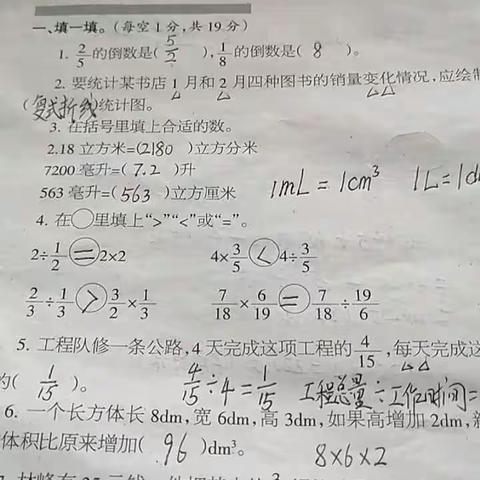 一、填一填。(每空1分,共19分)
1. 2/5的倒数是( 5/2 ),1/8的倒数是( 8 )。
2. 要统计某书店1月和2月四种图书的销量变化情况,应绘制
(复式折线)统计图。
3. 在括号里填上合适的数。
2.18立方米=(2180)立方分米
7200毫升=(7.2)升
563毫升=(563)立方厘米 1mL=1cm³ 1L=1d
4. 在○里填上“>”“<”或“=”。
2÷1/2 = 2×2 4×3/5 < 4÷3/5
2/3÷1/3 > 3/2×1/3 7/18×6/19 = 7/18÷19/6
5. 工程队修一条公路,4天完成这项工程的4/15,每天完成这
的( 1/15 )。 4/15÷4=1/15 工程总量÷工作时间=
6. 一个长方体长8dm,宽6dm,高3dm,如果高增加2dm,新
体积比原来增加( 96 )dm³。 8×6×2